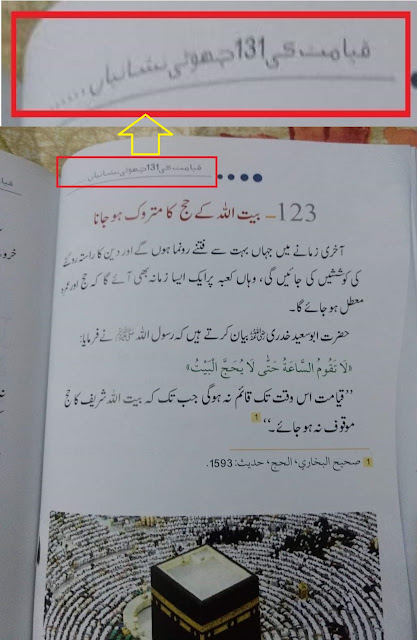 قیامت کی 131 چھوٹی نشانیاں.....
قیامت کی 131 چھوٹی نشانیاں
123– بیت اللہ کے حج کا متروک ہو جانا
آخری زمانے میں جہاں بہت سے فتنے رونما ہوں گے اور دین کا راستہ روکنے
کی کوششیں کی جائیں گی، وہاں کعبہ پر ایک ایسا زمانہ بھی آئے گا کہ حج اور عمرہ
معطل ہو جائے گا۔
حضرت ابوسعید خدری رضی اللہ عنہ بیان کرتے ہیں کہ رسول اللہ ﷺ نے فرمایا:
«لَا تَقُومُ السَّاعَةُ حَتّٰى لَا يُحَجَّ الْبَيْتُ»
’’قیامت اس وقت تک قائم نہ ہوگی جب تک کہ بیت اللہ شریف کا حج
موقوف نہ ہو جائے۔‘‘ 1
1 صحيح البخاري، الحج، حديث: 1593.